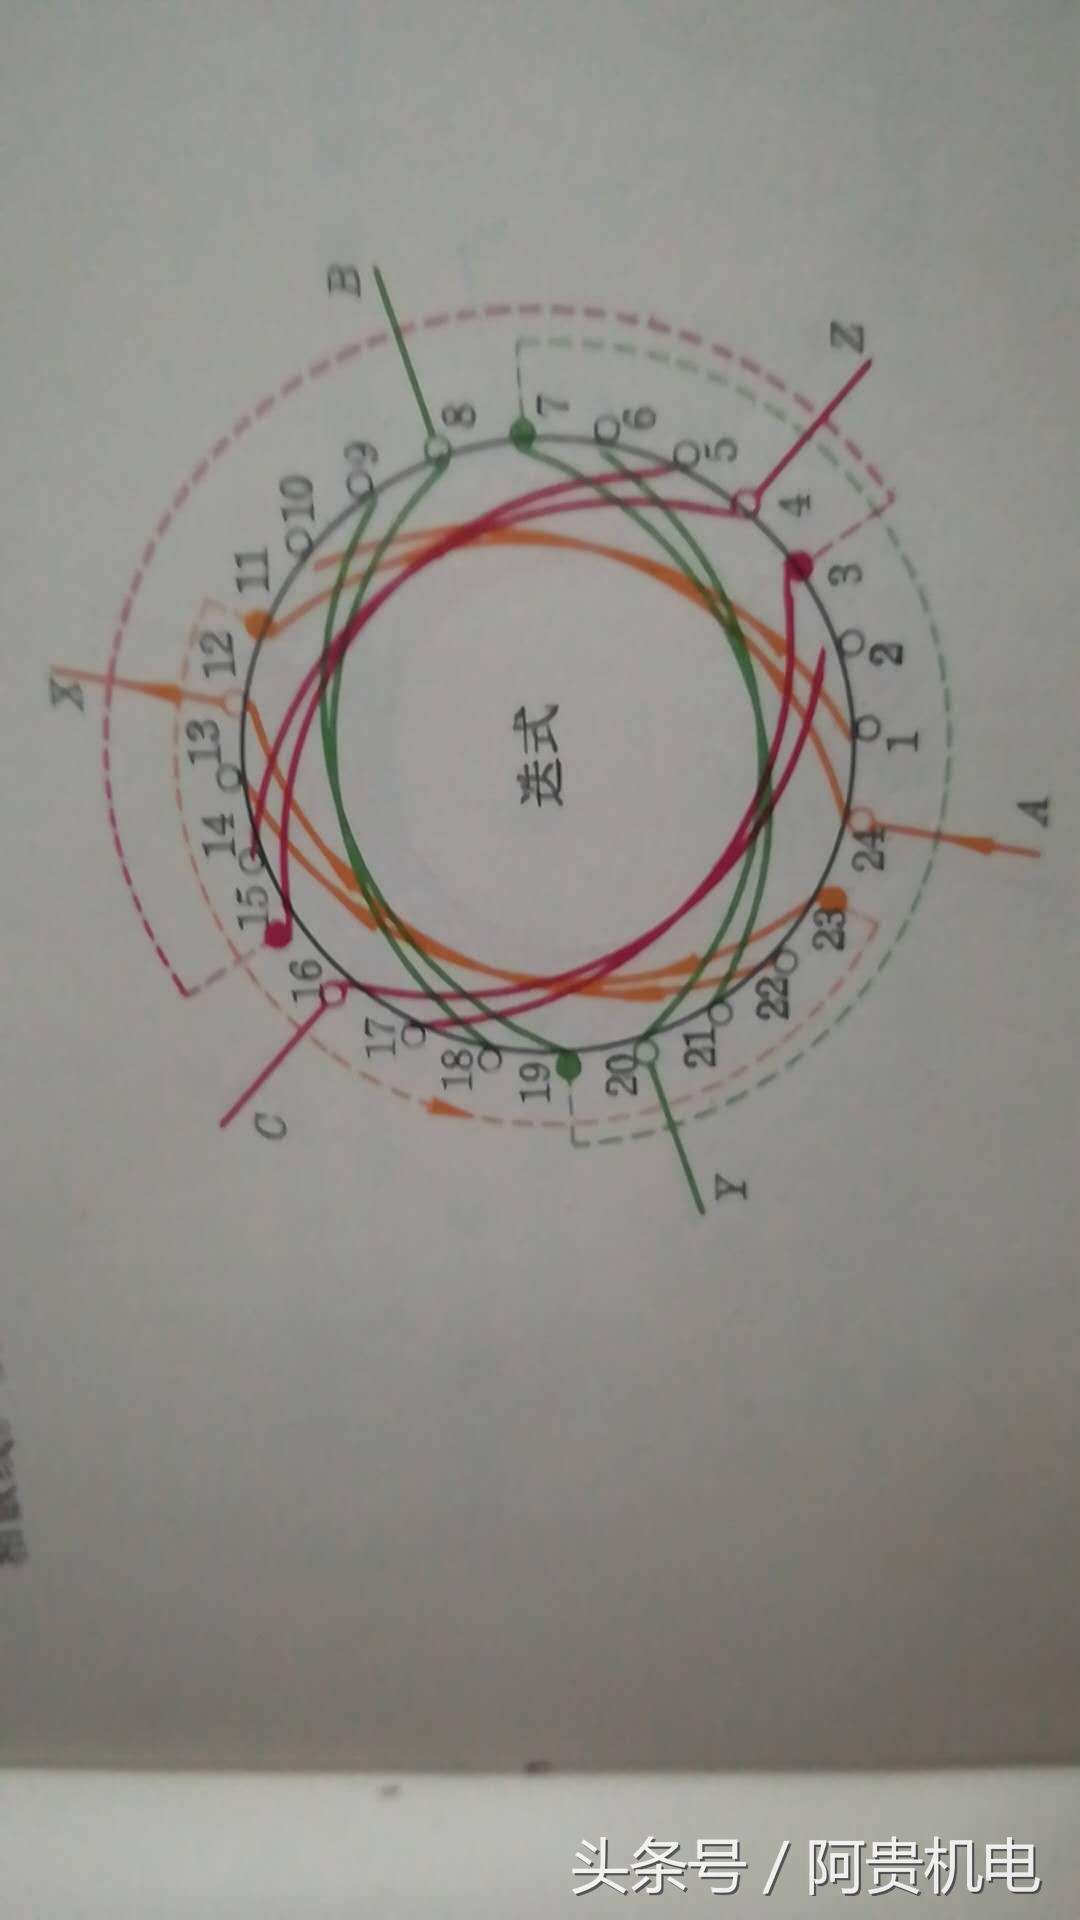 迭式
1
2
3
4
5
6
7
8
9
10
11
12
13
14
15
16
17
18
19
20
21
22
23
24
A
X
B
Y
C
Z
头条号 / 阿贵机电